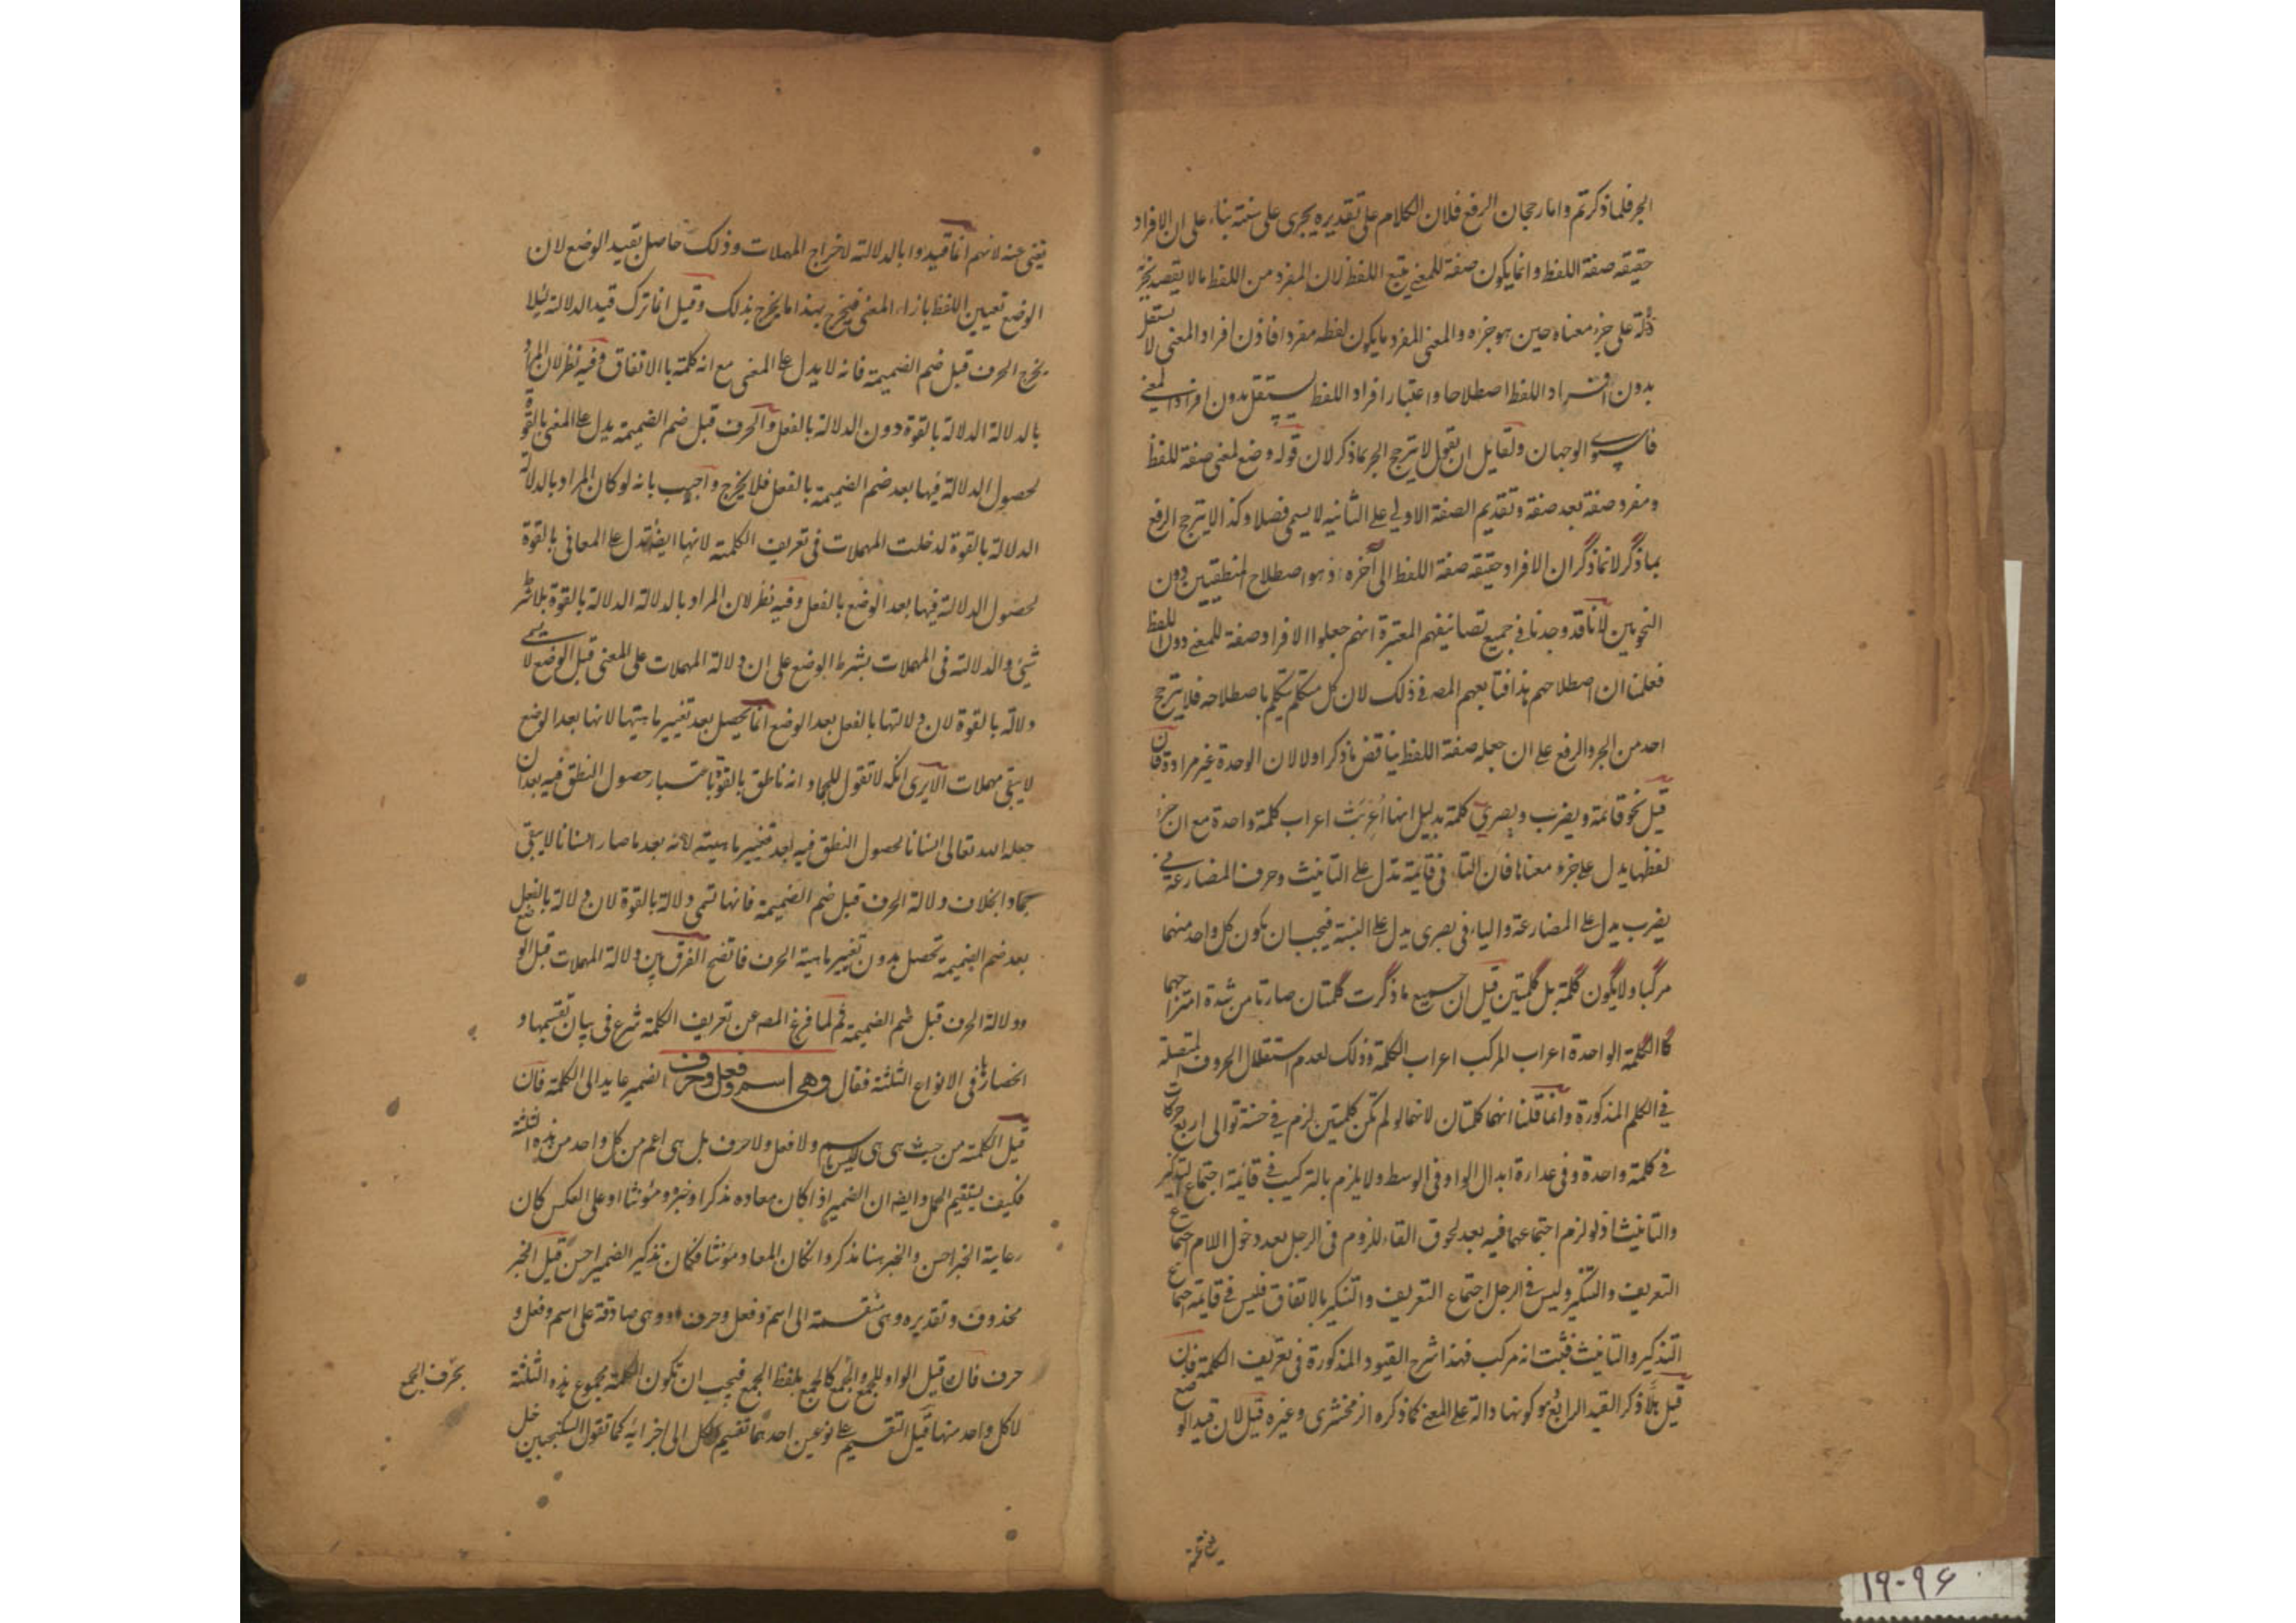 الجر فلما ذكرتم واما رجحان الرفع فلان الكلام على تقديره يجرى على سنته بناء على ان الافراد
حقيقة صفة اللفظ وانما يكون صفة للمعنى بتبع اللفظ لان المفرد من اللفظ ما لا يقصد بجزء
دلالة على جزء معناه حين هو جزءه والمعنى المفرد ما يكون لفظه مفردا فاذن افراد المعنى لا يستقل
بدون افراد اللفظ اصطلاحا واعتبار افراد اللفظ يستقل بدون افراد المعنى
فاستوى الوجهان ولقايل ان يقول لا يترجح الجر بما ذكر لان قوله وضع لمعنى صفة للفظ
ومفرد صفة بعد صفة وتقديم الصفة الاولى على الثانيه لا يسمى فصلا وكذا لا يترجح الرفع
بما ذكر لانما ذكر ان الافراد حقيقة صفة اللفظ الى آخره اذ هو اصطلاح المنطقيين دون
النحويين لانا قد وجدنا فى جميع تصانيفهم المعتبرة انهم جعلوا الافراد صفة للمعنى دون اللفظ
فعلمنا ان اصطلاحهم هذا فتابعهم المصـ فى ذلك لان كل متكلم يتكلم باصطلاحه فلا يترجح
احد من الجر والرفع على ان جعله صفة اللفظ يناقض ما ذكر اولا لان الوحدة غير مرادة فان
قيل نحو قائمة ويضرب وبصرى كلمة بدليل انها اعربت اعراب كلمة واحدة مع ان جزء
لفظها يدل على جزء معناها فان التاء فى قائمة تدل على التانيث وحرف المضارعة فى
يضرب يدل على المضارعة والياء فى بصرى يدل على النسبة فيجب ان يكون كل واحد منهما
مركبا ولا يكون كلمة بل كلمتين قيل ان جميع ما ذكرت كلمتان صارتا من شدة امتزاجهما
كالكلمة الواحدة اعراب المركب اعراب الكلمة وذلك لعدم استقلال الحروف المتصلة
فى الكلم المذكورة وانما قلنا انهما كلمتان لانهما لو لم تكن كلمتين لزم فى حسنة توالى اربع حركات
فى كلمة واحدة وفى عدارة ابدال الواو فى الوسط ولا يلزم بالتركيب فى قائمة اجتماع التذكير
والتانيث اذ لو لزم اجتماعهما فيه بعد لحوق التاء للزوم فى الرجل بعد دخول اللام اجتماع
التعريف والتنكير وليس فى الرجل اجتماع التعريف والتنكير بالاتفاق فليس فى قائمة اجتماع
التذكير والتانيث فثبت انه مركب فهذا شرح القيود المذكورة فى تعريف الكلمة فان
قيل هلا ذكر القيد الرابع هو كونها دالة على المعنى كما ذكره الزمخشرى وغيره قيل لان قيد الوضع
يغنى عنه لانهم انما قيدوا بالدلالة لاخراج المهملات وذلك حاصل بقيد الوضع لان
الوضع تعيين اللفظ بازاء المعنى فيخرج بهذا ما يخرج بذلك وقيل انما ترك قيد الدلالة ليلا
يخرج الحرف قبل ضم الضميمة فانه لا يدل على المعنى مع انه كلمة بالاتفاق وفيه نظر لان المراد
بالدلالة الدلالة بالقوة دون الدلالة بالفعل والحرف قبل ضم الضميمة يدل على المعنى بالقوة
لحصول الدلالة فيها بعد ضم الضميمة بالفعل فلا يخرج واجيب بانه لو كان المراد بالدلالة
الدلالة بالقوة لدخلت المهملات فى تعريف الكلمة لانها ايضا تدل على المعانى بالقوة
لحصول الدلالة فيها بعد الوضع بالفعل وفيه نظر لان المراد بالدلالة الدلالة بالقوة بلا شرط
شيئ والدلالة فى المهملات بشرط الوضع على ان دلالة المهملات على المعنى قبل الوضع لا يسمى
دلالة بالقوة لان دلالتها بالفعل بعد الوضع انما يحصل بعد تغيير ماهيتها لانها بعد الوضع
لا يبقى مهملات الا يرى انك لا تقول للجماد انه ناطق بالقوة باعتبار حصول النطق فيه بعد ان
جعله الله تعالى انسانا لحصول النطق فيه بعد تغيير ماهيته لانه بعد ما صار انسانا لا يبقى
جمادا بخلاف دلالة الحرف قبل ضم الضميمة فانها تسمى دلالة بالقوة لان دلالة بالفعل
بعد ضم الضميمة تحصل بدون تغيير ماهية الحرف فاتضح الفرق بين دلالة المهملات قبل الوضع
ودلالة الحرف قبل ضم الضميمة ثم لما فرغ المصـ عن تعريف الكلمة شرع فى بيان تقسيمها و
انحصارها فى الانواع الثلثة فقال وهى اسم وفعل وحرف الضمير عايد الى الكلمة فان
قيل الكلمة من حيث هى هى ليس باسم ولا فعل ولا حرف بل هى اعم من كل واحد من هذه الثلثة
فكيف يستقيم الحمل وايضا ان الضمير اذا كان معاده مذكرا وخبره مؤنثا او على العكس كان
رعاية الخبر احسن والخبر هنا مذكر وان كان المعاد مؤنثا فكان تذكير الضمير احسن قيل الخبر
محذوف وتقديره وهى منقسمة الى اسم وفعل وحرف او وهى صادقة على اسم وفعل و
حرف فان قيل الواو للجمع والجمع كالجمع بلفظ الجمع فيجب ان تكون الكلمة مجموع هذه الثلثة
بحرف الجمع
لا كل واحد منها قيل التقسيم على نوعين احدهما تقسيم الكل الى اجزائه كما تقول السكنجبين خل